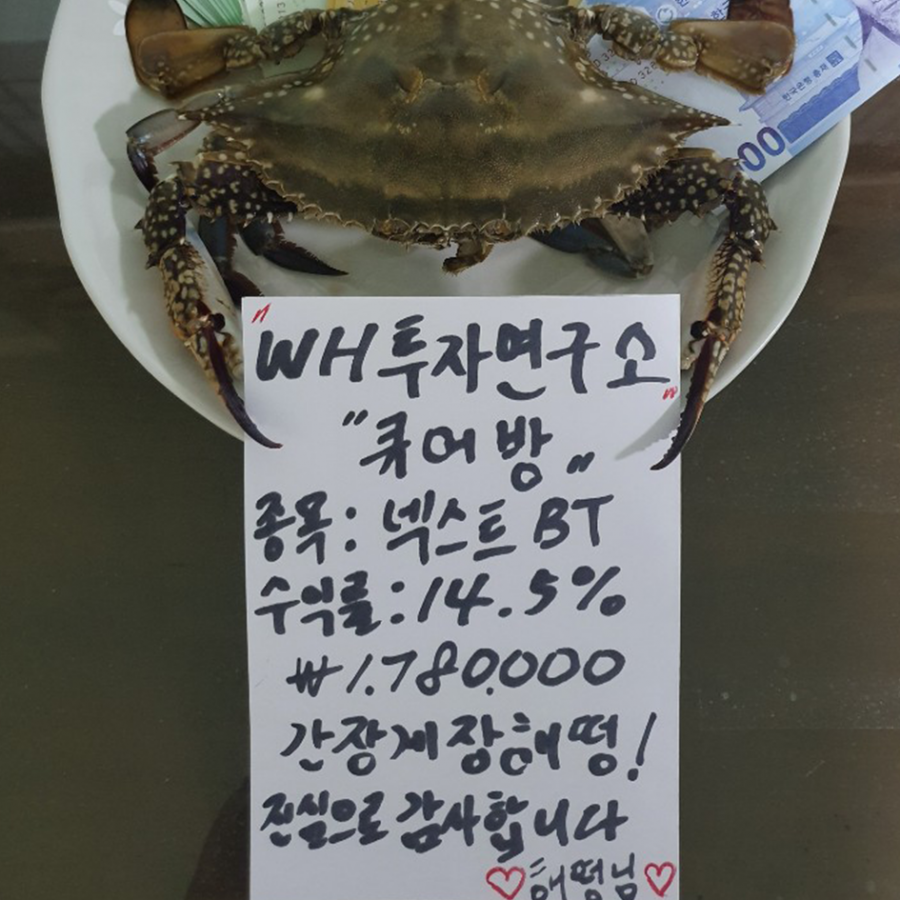 한국은행 총재
00
"WH투자연구소"
"큐어방"
종목: 넥스트BT
수익률:14.5%
₩1.780.000
간장게장해떵!
진실으로 감사합니다
♡해떵님♡